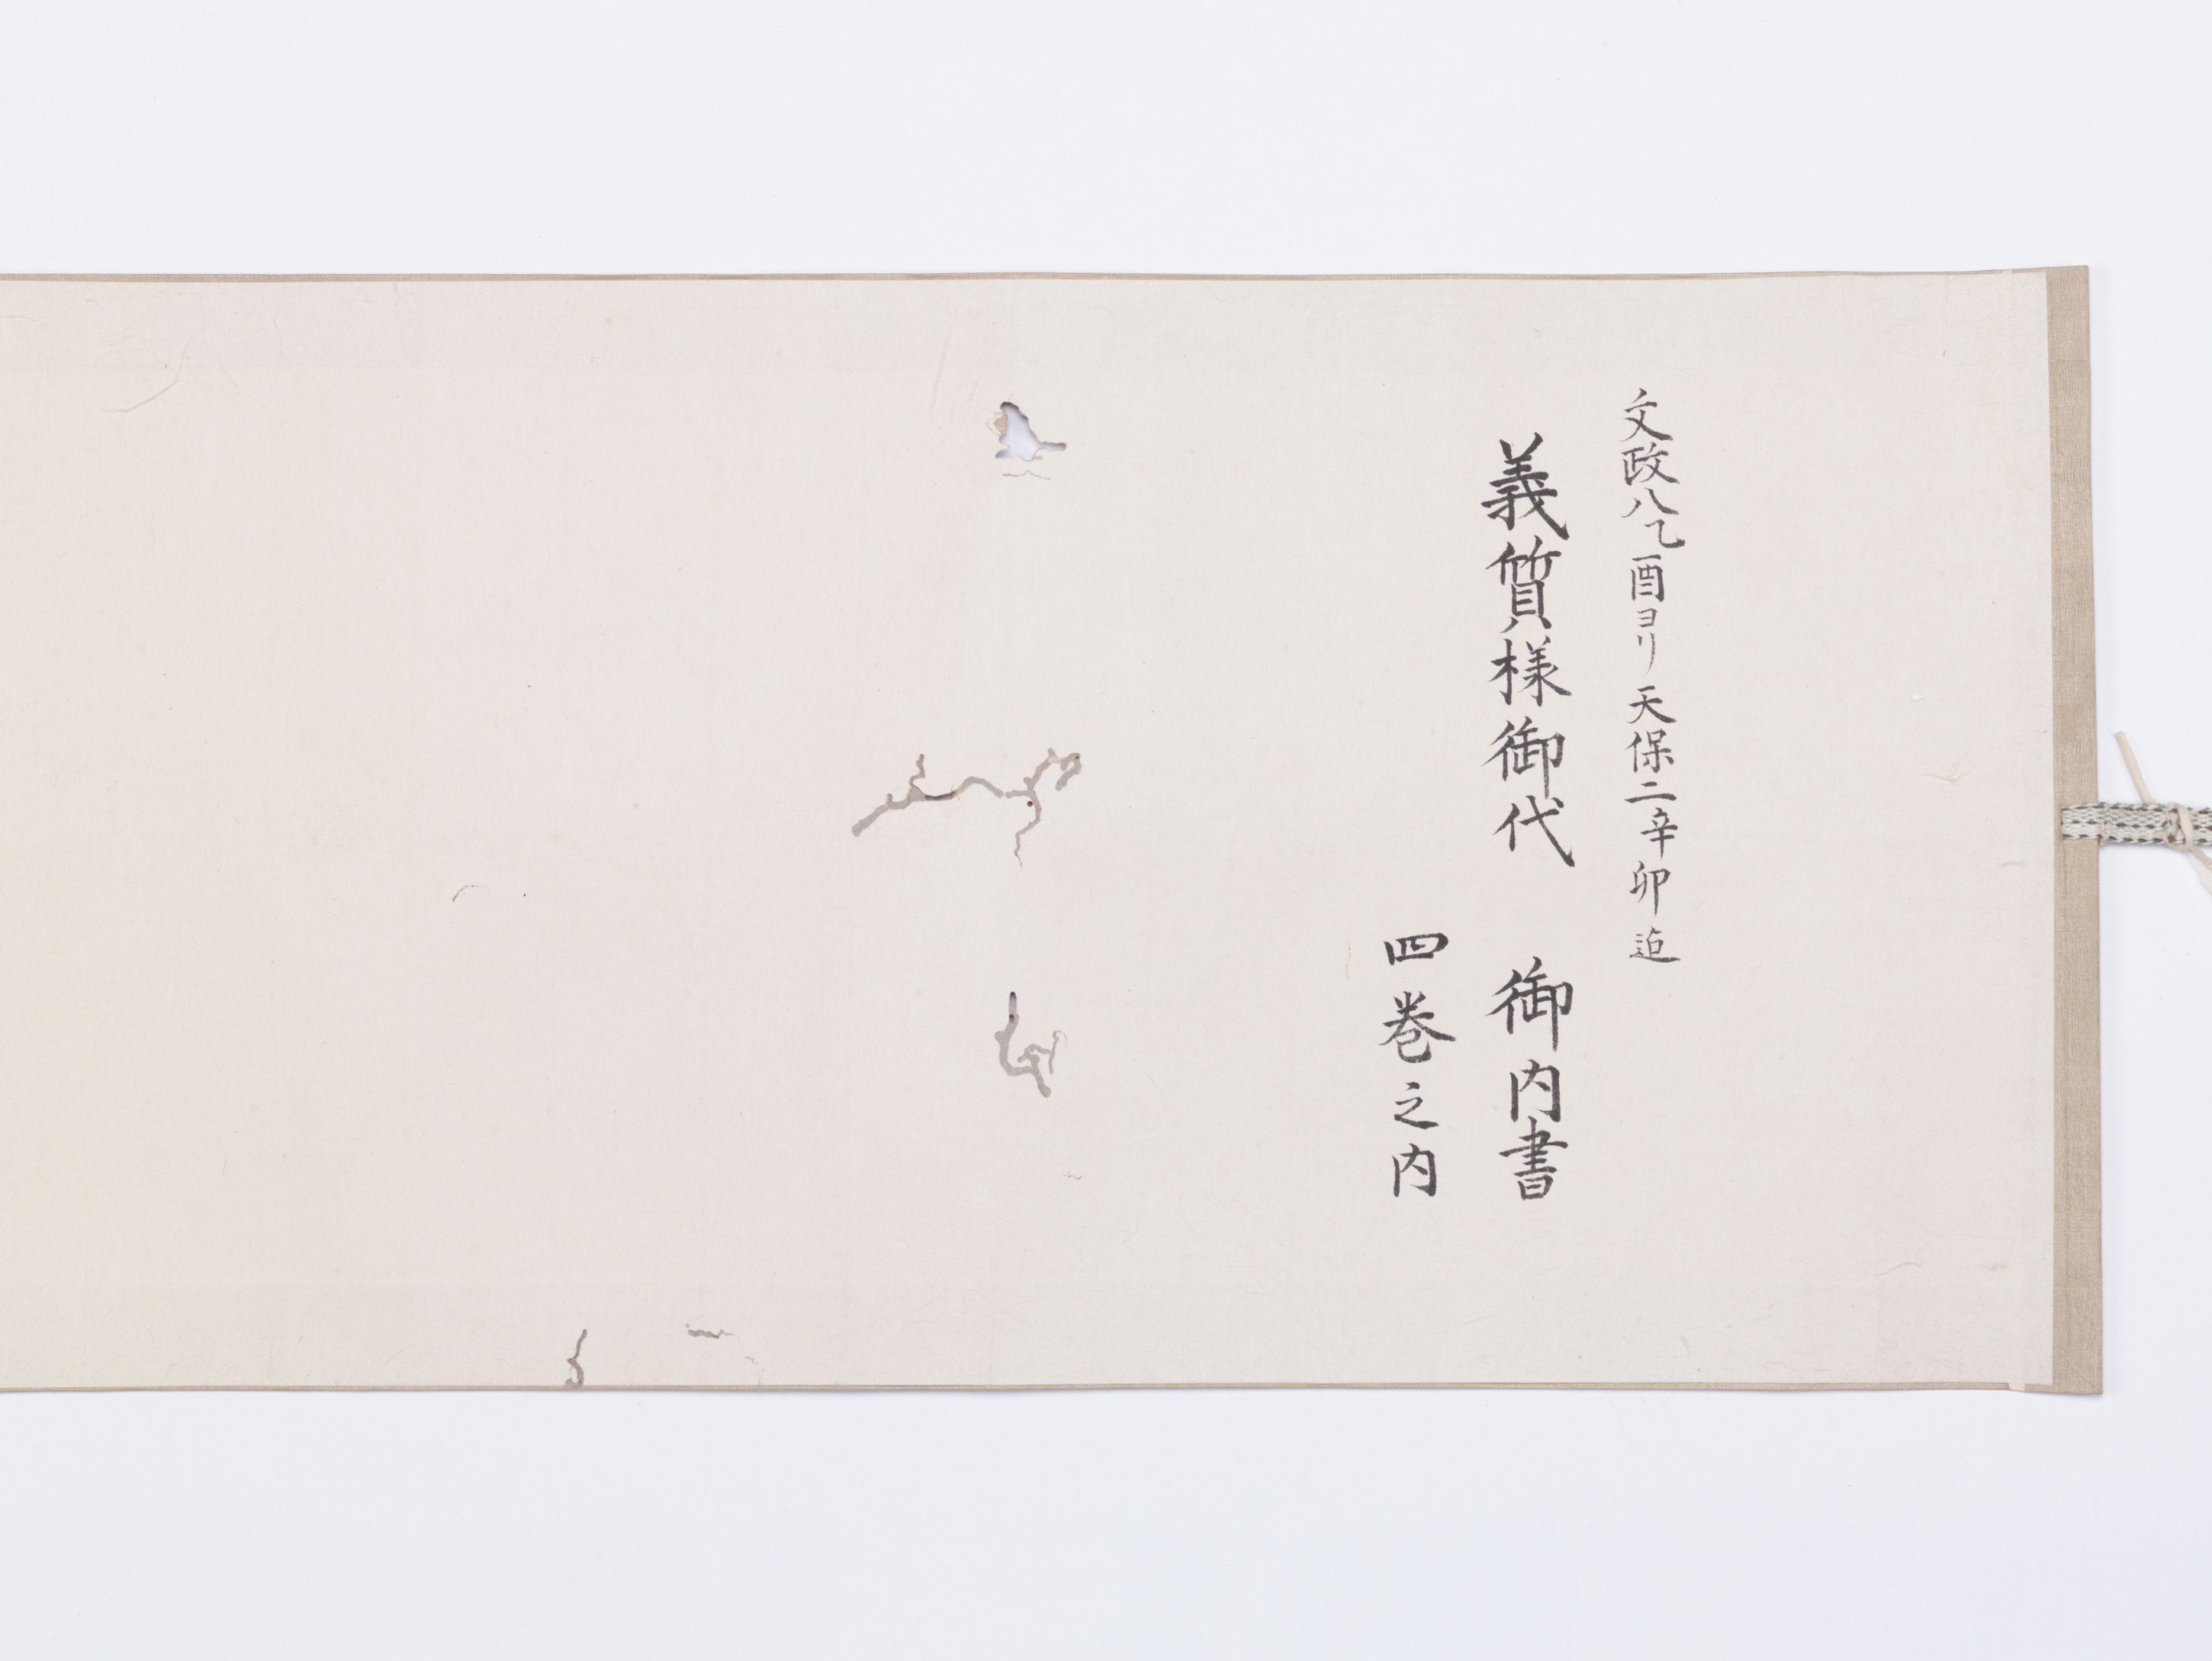 文政八乙酉ヨリ天保二辛卯迠
義質様御代　御内書
四巻之内